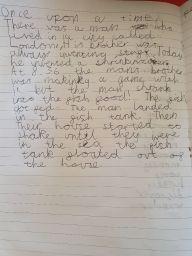 Once upon a time,
There was a man who
lived in a city called
London. His brother was
always inventing stuff. Today
he invented a shrinkinator
At 8:36 the mans brother
was making a game with
it but the man shrank
into the fish pond! The fish
The man landed
in the fish tank. Then
their house started to
shake until they were
in the sea the fish
tank floated out of
the house.